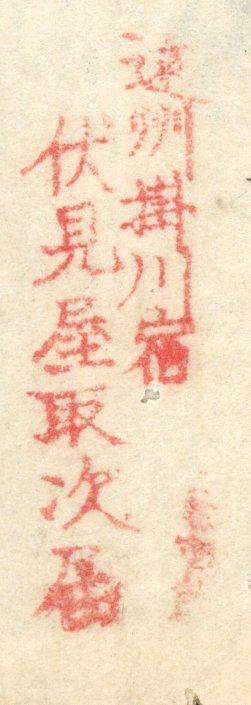 遠州掛川宿
伏見屋取次届